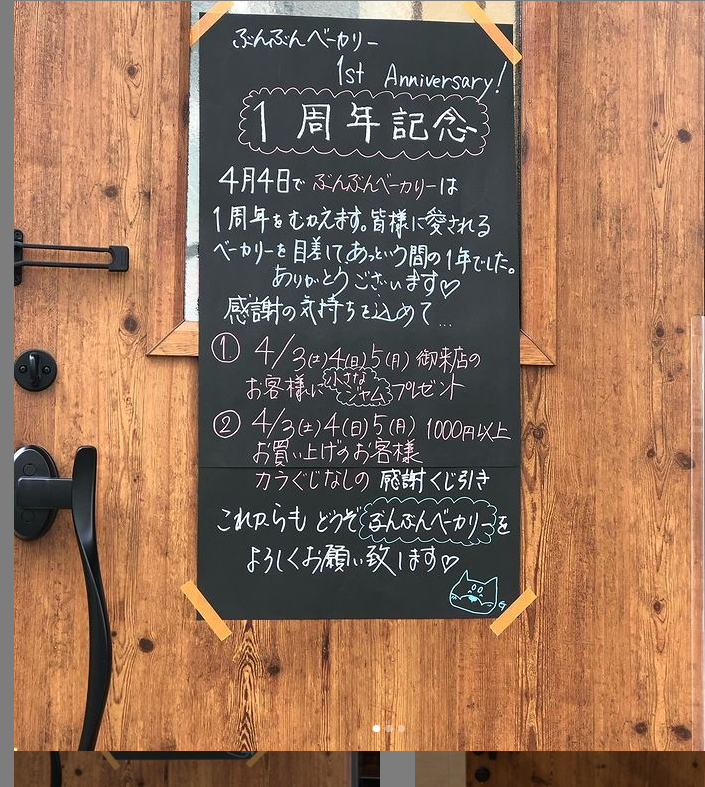 ぶんぶんベーカリー
1st Anniversary!
1周年記念
4月4日で ぶんぶんベーカリーは
1周年をむかえます。皆様に愛される
ベーカリーを目差してあっという間の1年でした。
ありがとうございます♡
感謝の気持ちを込めて...
① 4/3(土)4(日)5(月) 御来店の
お客様に小さなジャムプレゼント
② 4/3(土)4(日)5(月) 1000円以上
お買い上げのお客様
カラくじなしの 感謝くじ引き
これからも どうぞ ぶんぶんベーカリーを
よろしくお願い致します♡